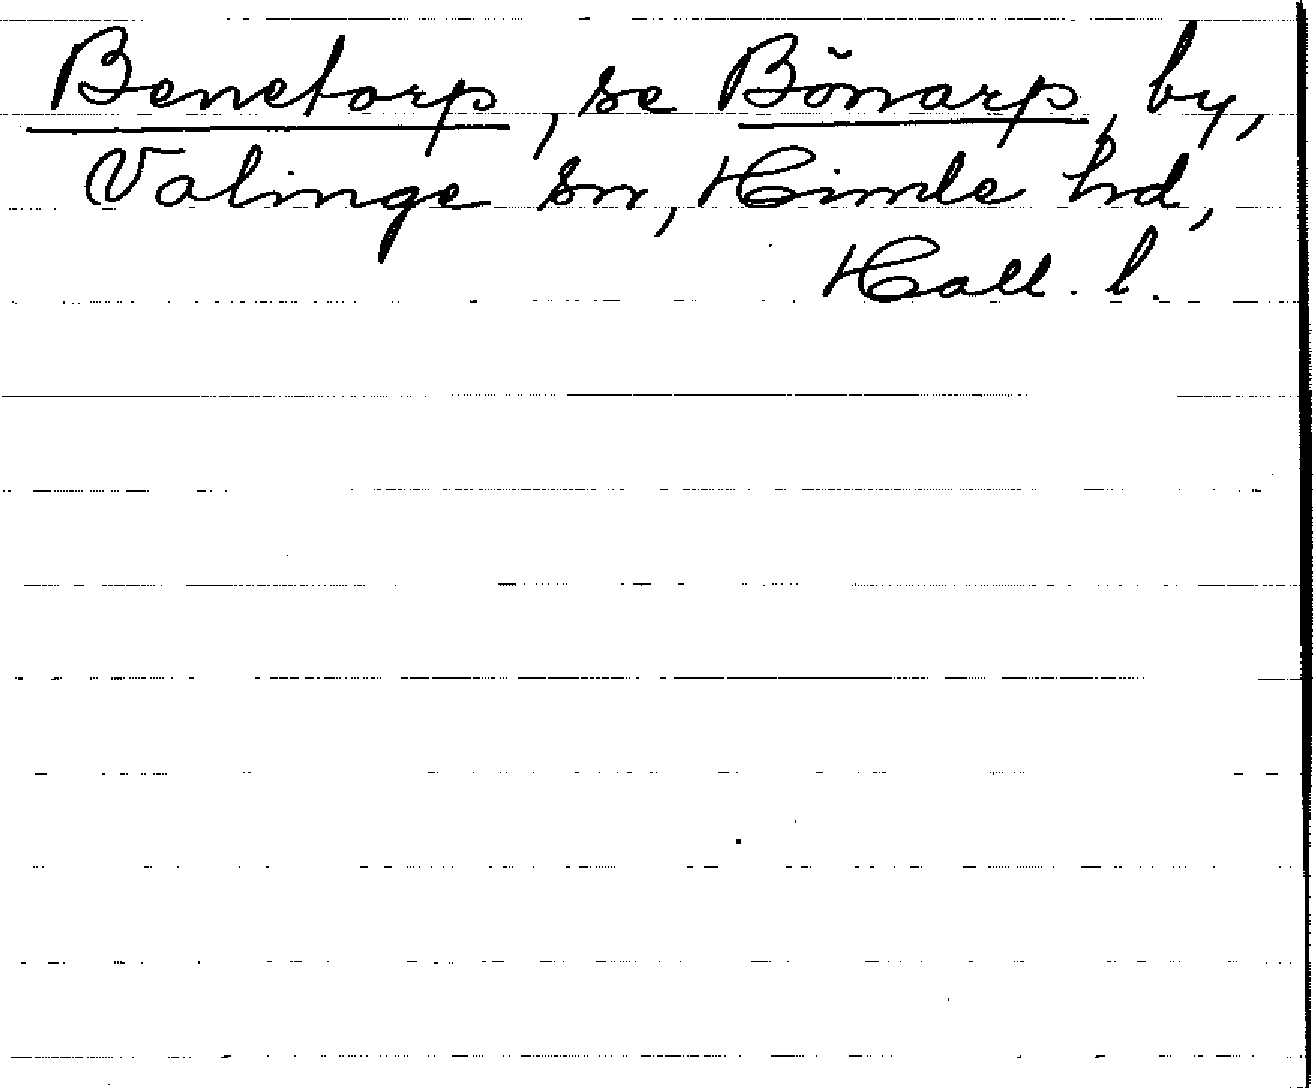 Benetorp, se Bönarp, by,
Valinge sn, Himle hd,
Hall. l.